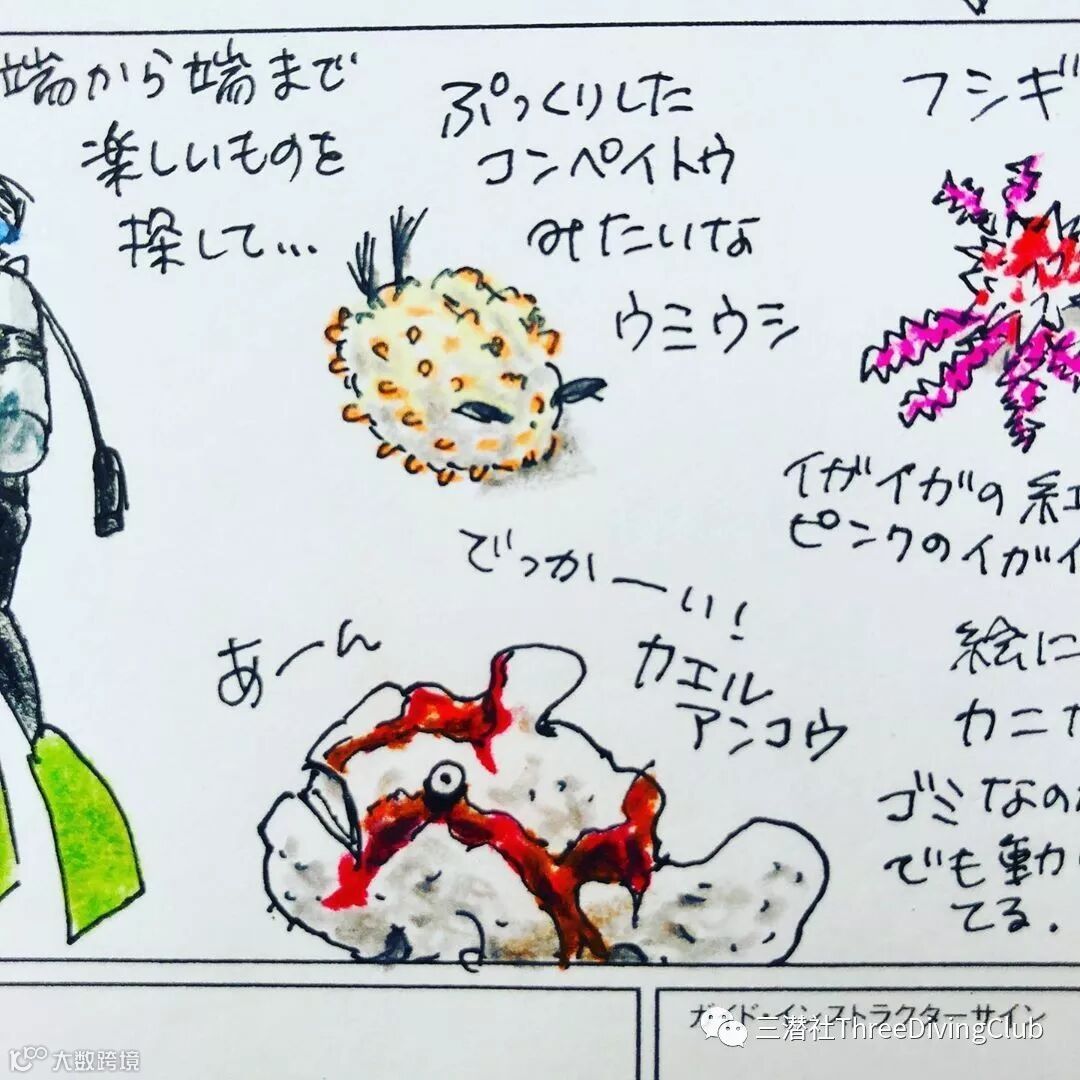 端から端まで
楽しいものを
探して...
ぷっくりした
コンペイトウ
みたいな
ウミウシ
フシギ
イガイガの紅
ピンクのイガイ
でっかーい!
カエル
アンコウ
あーん
絵に
カニ
ゴミなの
でも動か
てる.
ガイド・インストラクターサイン
三潜社ThreeDivingClub
大数跨境